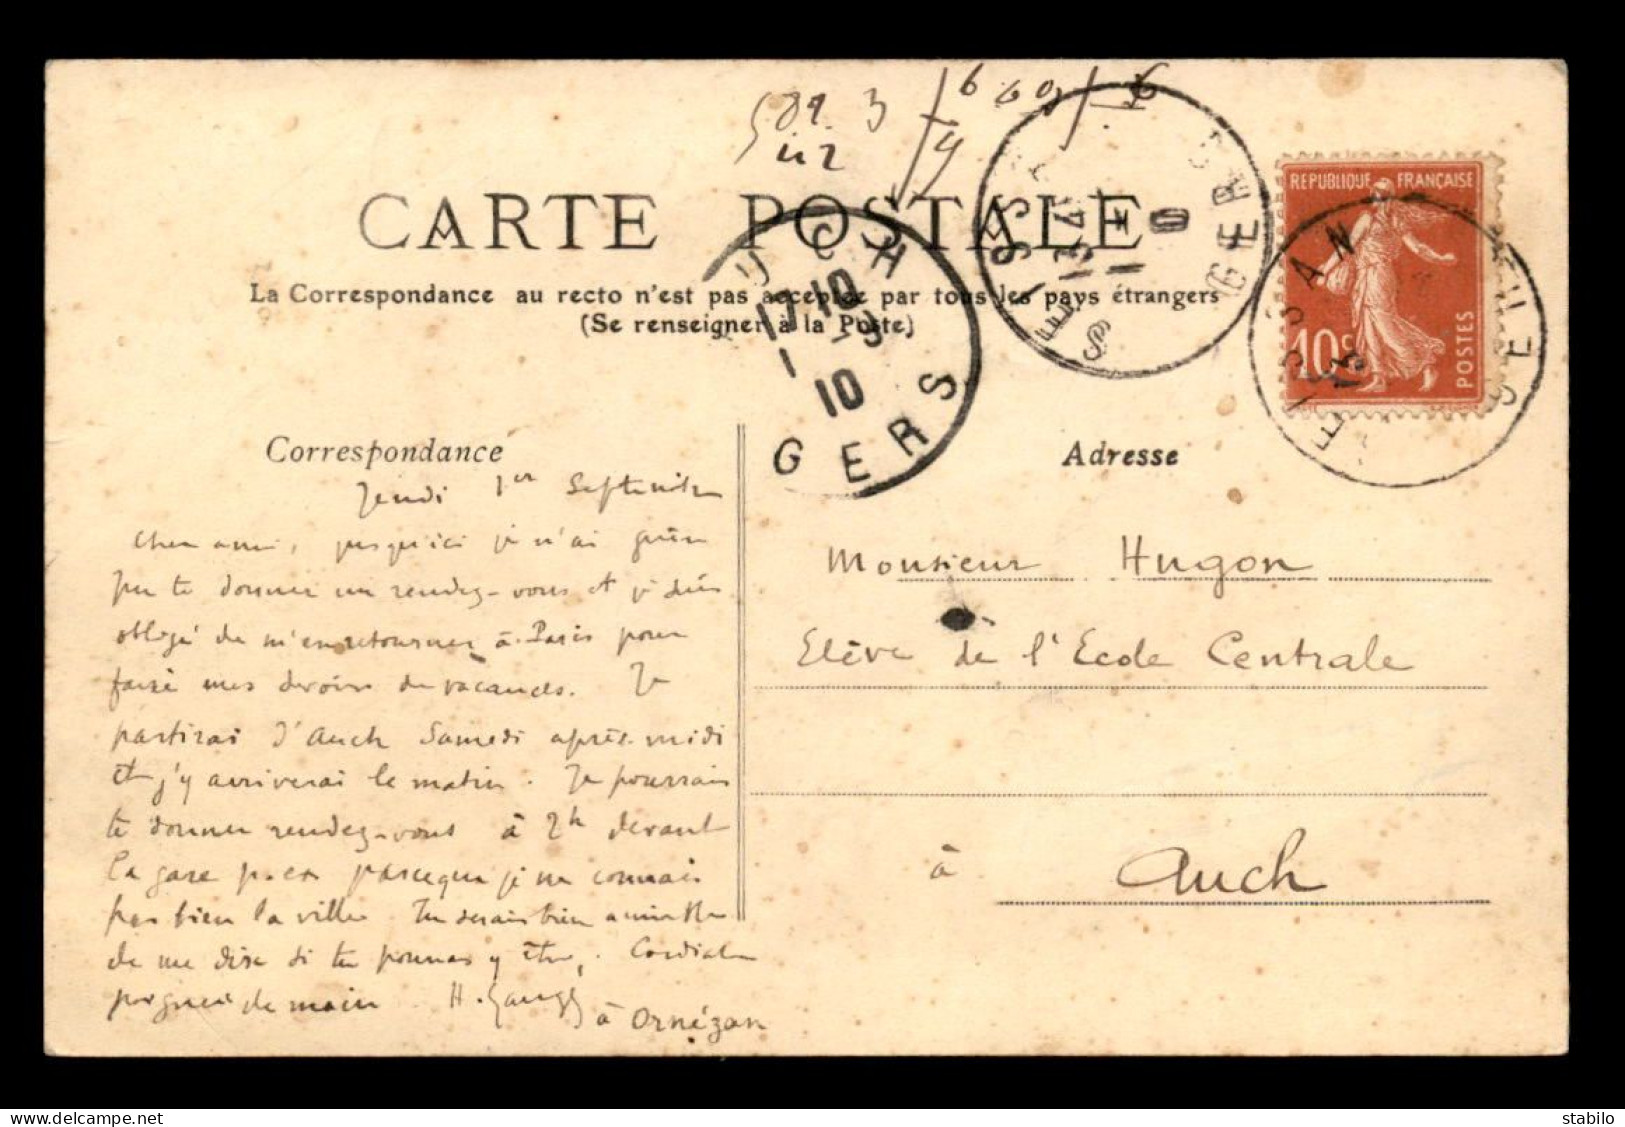 CARTE POSTALE
La Correspondance au recto n'est pas acceptée par tous les pays étrangers
(Se renseigner à la Poste)
RÉPUBLIQUE FRANÇAISE
10c
POSTES
AUCH
17 10
1 -9
10
GERS
SEISSAN
GERS
Correspondance
Jeudi 1er Septembre
Cher ami, jusqu'ici je n'ai guère
pu te donner un rendez-vous et je suis
obligé de m'en retourner à Paris pour
faire mes devoirs de vacances. Je
partirai d'Auch Samedi après-midi
et j'y arriverai le matin. Je pourrais
te donner rendez-vous à 2h devant
la gare parceque je ne connais
pas bien la ville. Tu serais bien aimable
de me dire si tu pourras y être. Cordiale
poignée de main. H.
à Ornézan
Adresse
Monsieur Hugon
Elève de l'Ecole Centrale
à Auch
stabilo